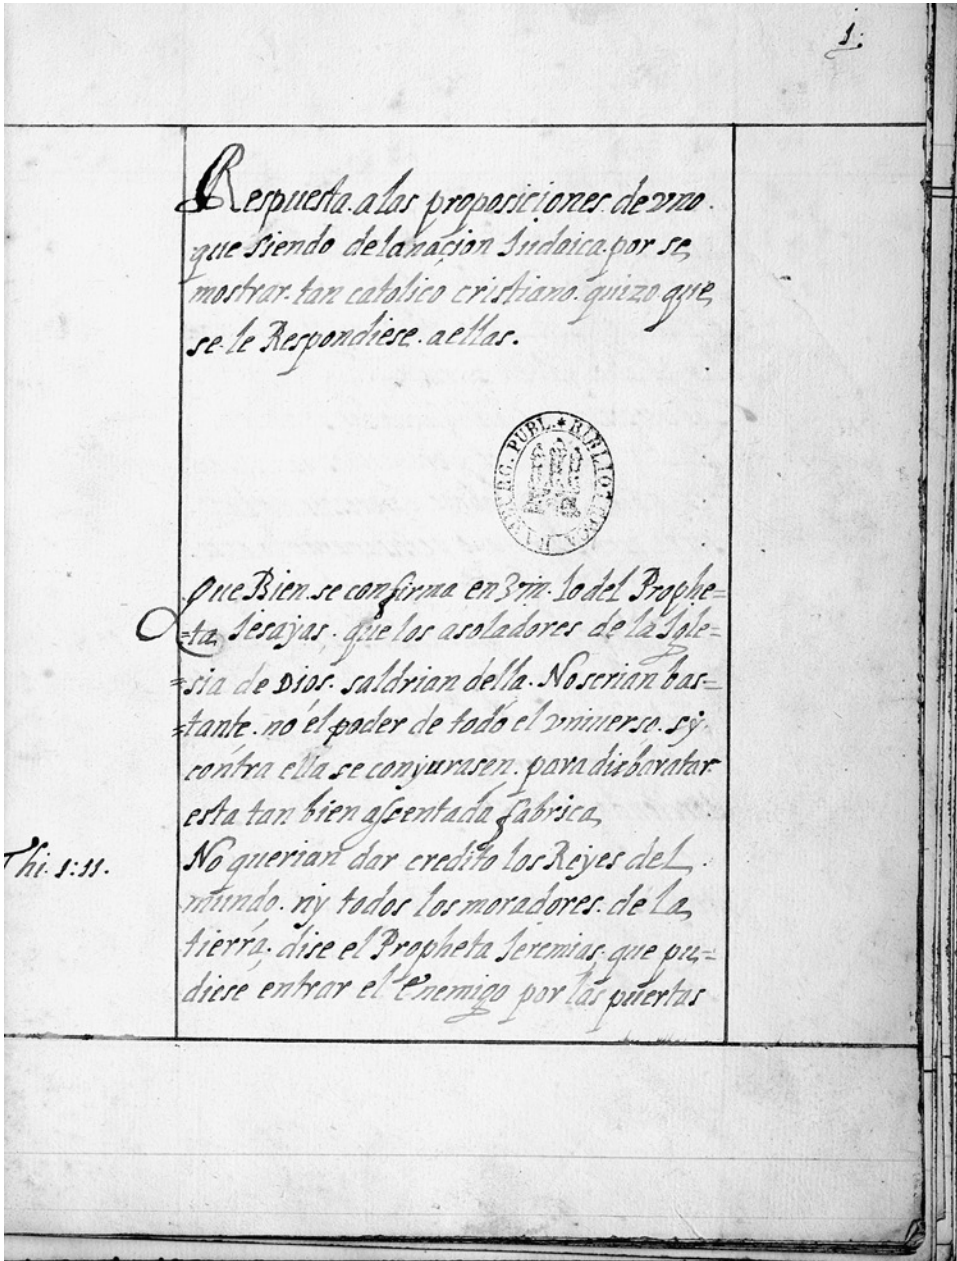 1.
Respuesta. a las proposiciones. de vno.
que siendo de la naçion Iudaica. por se
mostrar. tan catolico cristiano. quizo que
se le Respondiese. a ellas.
HAMBURG. PUBL. * BIBLIOTHECA
Que Bien. se confirma en 3m. lo del Prophe=
=ta Iesayas, que los asoladores de la Igle=
=sia de Dios. saldrian della. No serian bas=
=tante. no el poder de todo el vniuerso. sy
contra ella se conjurasen. para disbaratar
esta tan bien assentada fabrica,
Thi. 1:11.
No querian dar credito los Reyes del
mundo. ny todos los moradores. de la
tierra, dise el Propheta Ieremias. que pu=
diese entrar el Enemigo por las puertas